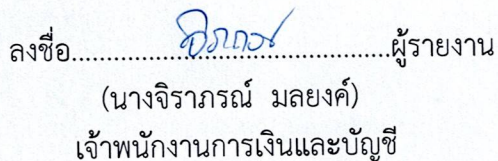 ลงชื่อ..........จิราภรณ์..........ผู้รายงาน
(นางจิราภรณ์ มลยงค์)
เจ้าพนักงานการเงินและบัญชี